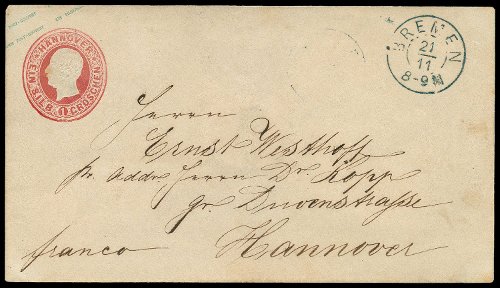 HANNOVER
EIN SILB. GROSCHEN
1
BREMEN
21
11
8-9 N
Herrn
Ernst Westhoff
pr. Addr. Herrn Dr. Kopp
gr. Duvenstrasse
franco
Hannover